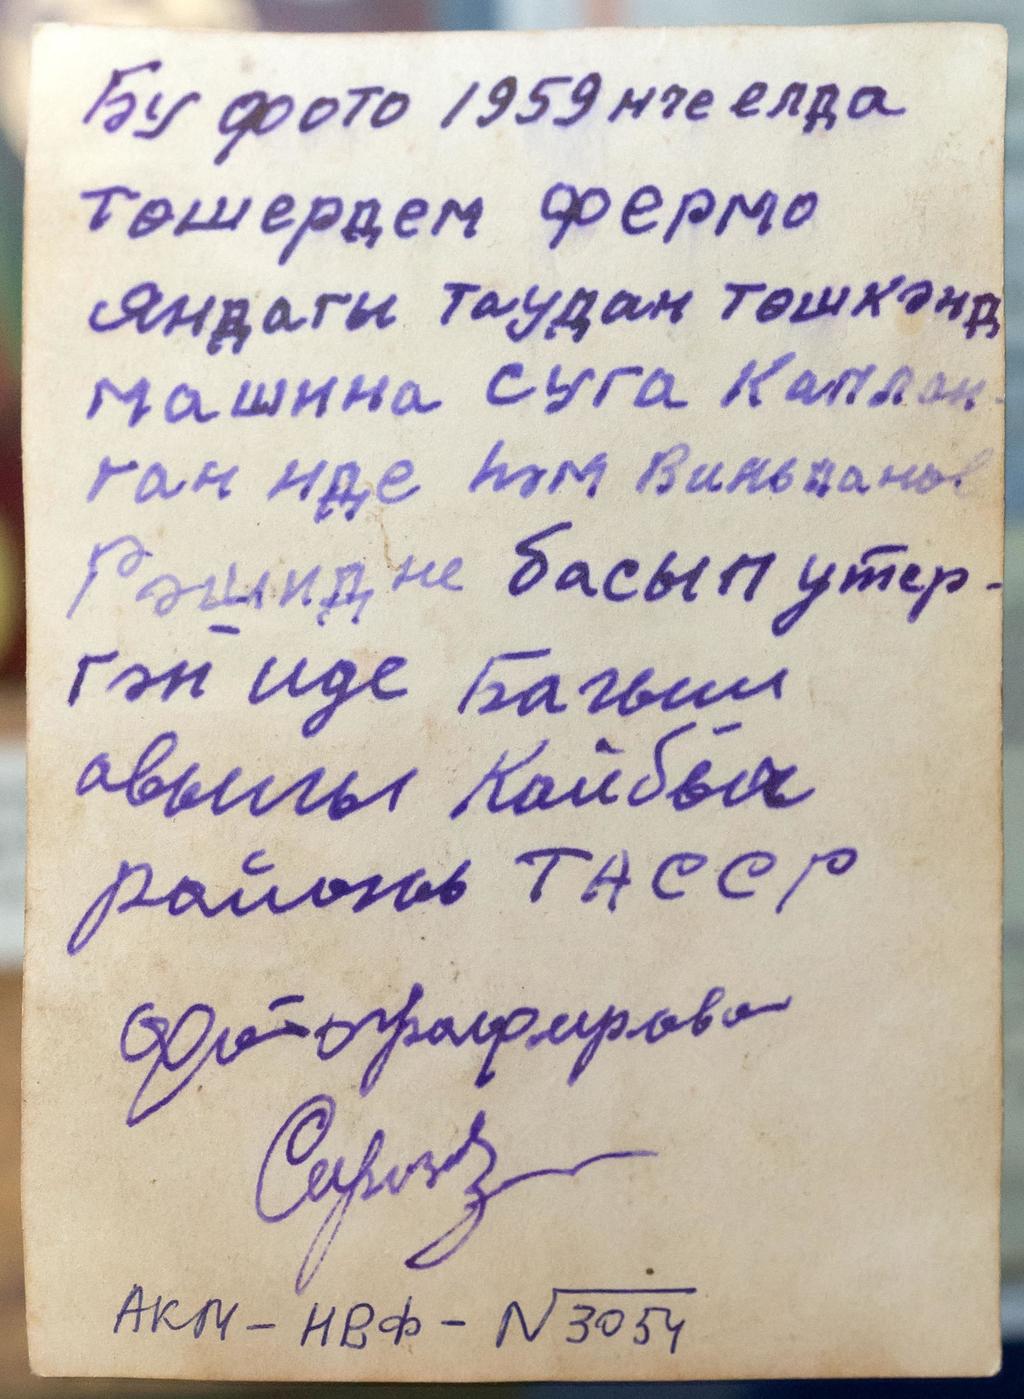 Бу фото 1959 нче елда
төшердем фермо
Яндагы таудан төшкәнд
машина суга Каплан-
ган иде һәм Виньданов
Рәшидне басып утер-
гән иде Багыш
авылы Кайбыч
районы ТАССР
Фотографирова
АКМ – НВФ – N 3054